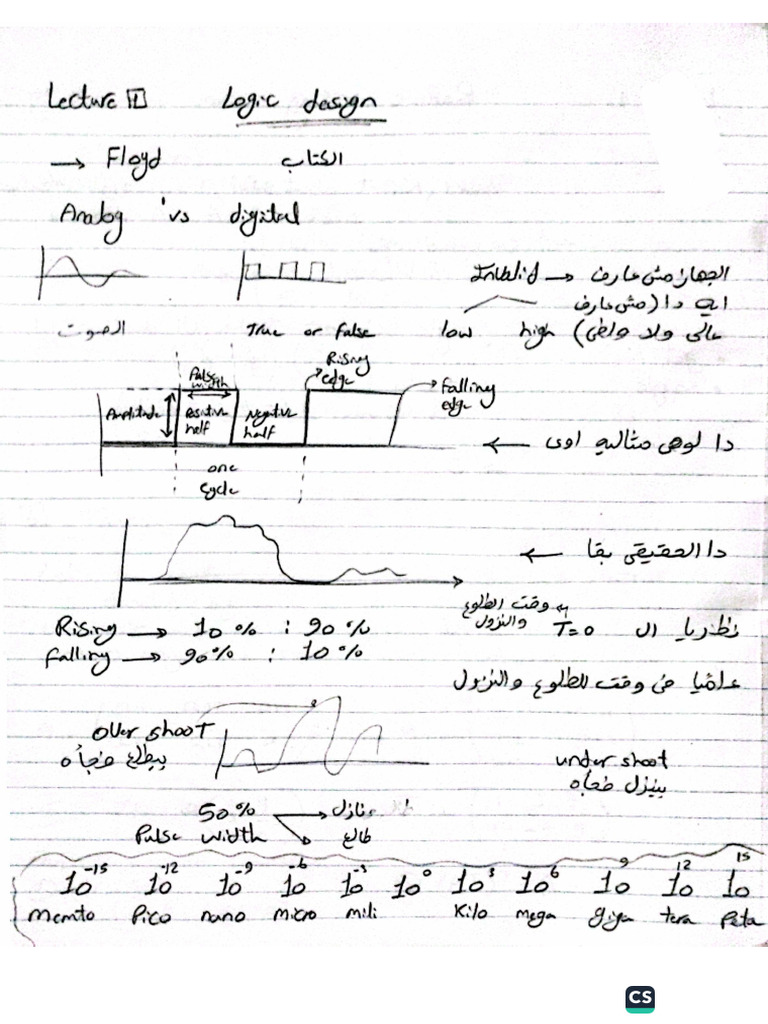 Lecture 1 Logic design
→ Floyd الكتاب
Analog vs digital
Invalid → الجهاز مش عارف
ايه دا (مش عارف
الصوت True or False low high عالي ولا واطي)
Pulse width Rising edge
Falling edge
Amplitude Positive half Negative half
دا لو هي مثاليه اوى ←
one cycle
دا الحقيقي بقا ←
وقت الطلوع والنزول
Rising → 10% : 90% T=0 نظريا ال
Falling → 90% : 10%
عمليا في وقت للطلوع والنزول
over shooT
بيطلع فجأه
under shoot
بينزل فجأه
50% → نازل
Pulse width طالع
10⁻¹⁵ 10⁻¹² 10⁻⁹ 10⁻⁶ 10⁻³ 10⁰ 10³ 10⁶ 10⁹ 10¹² 10¹⁵
Memto Pico nano micro mili Kilo mega giga tera Peta
CS